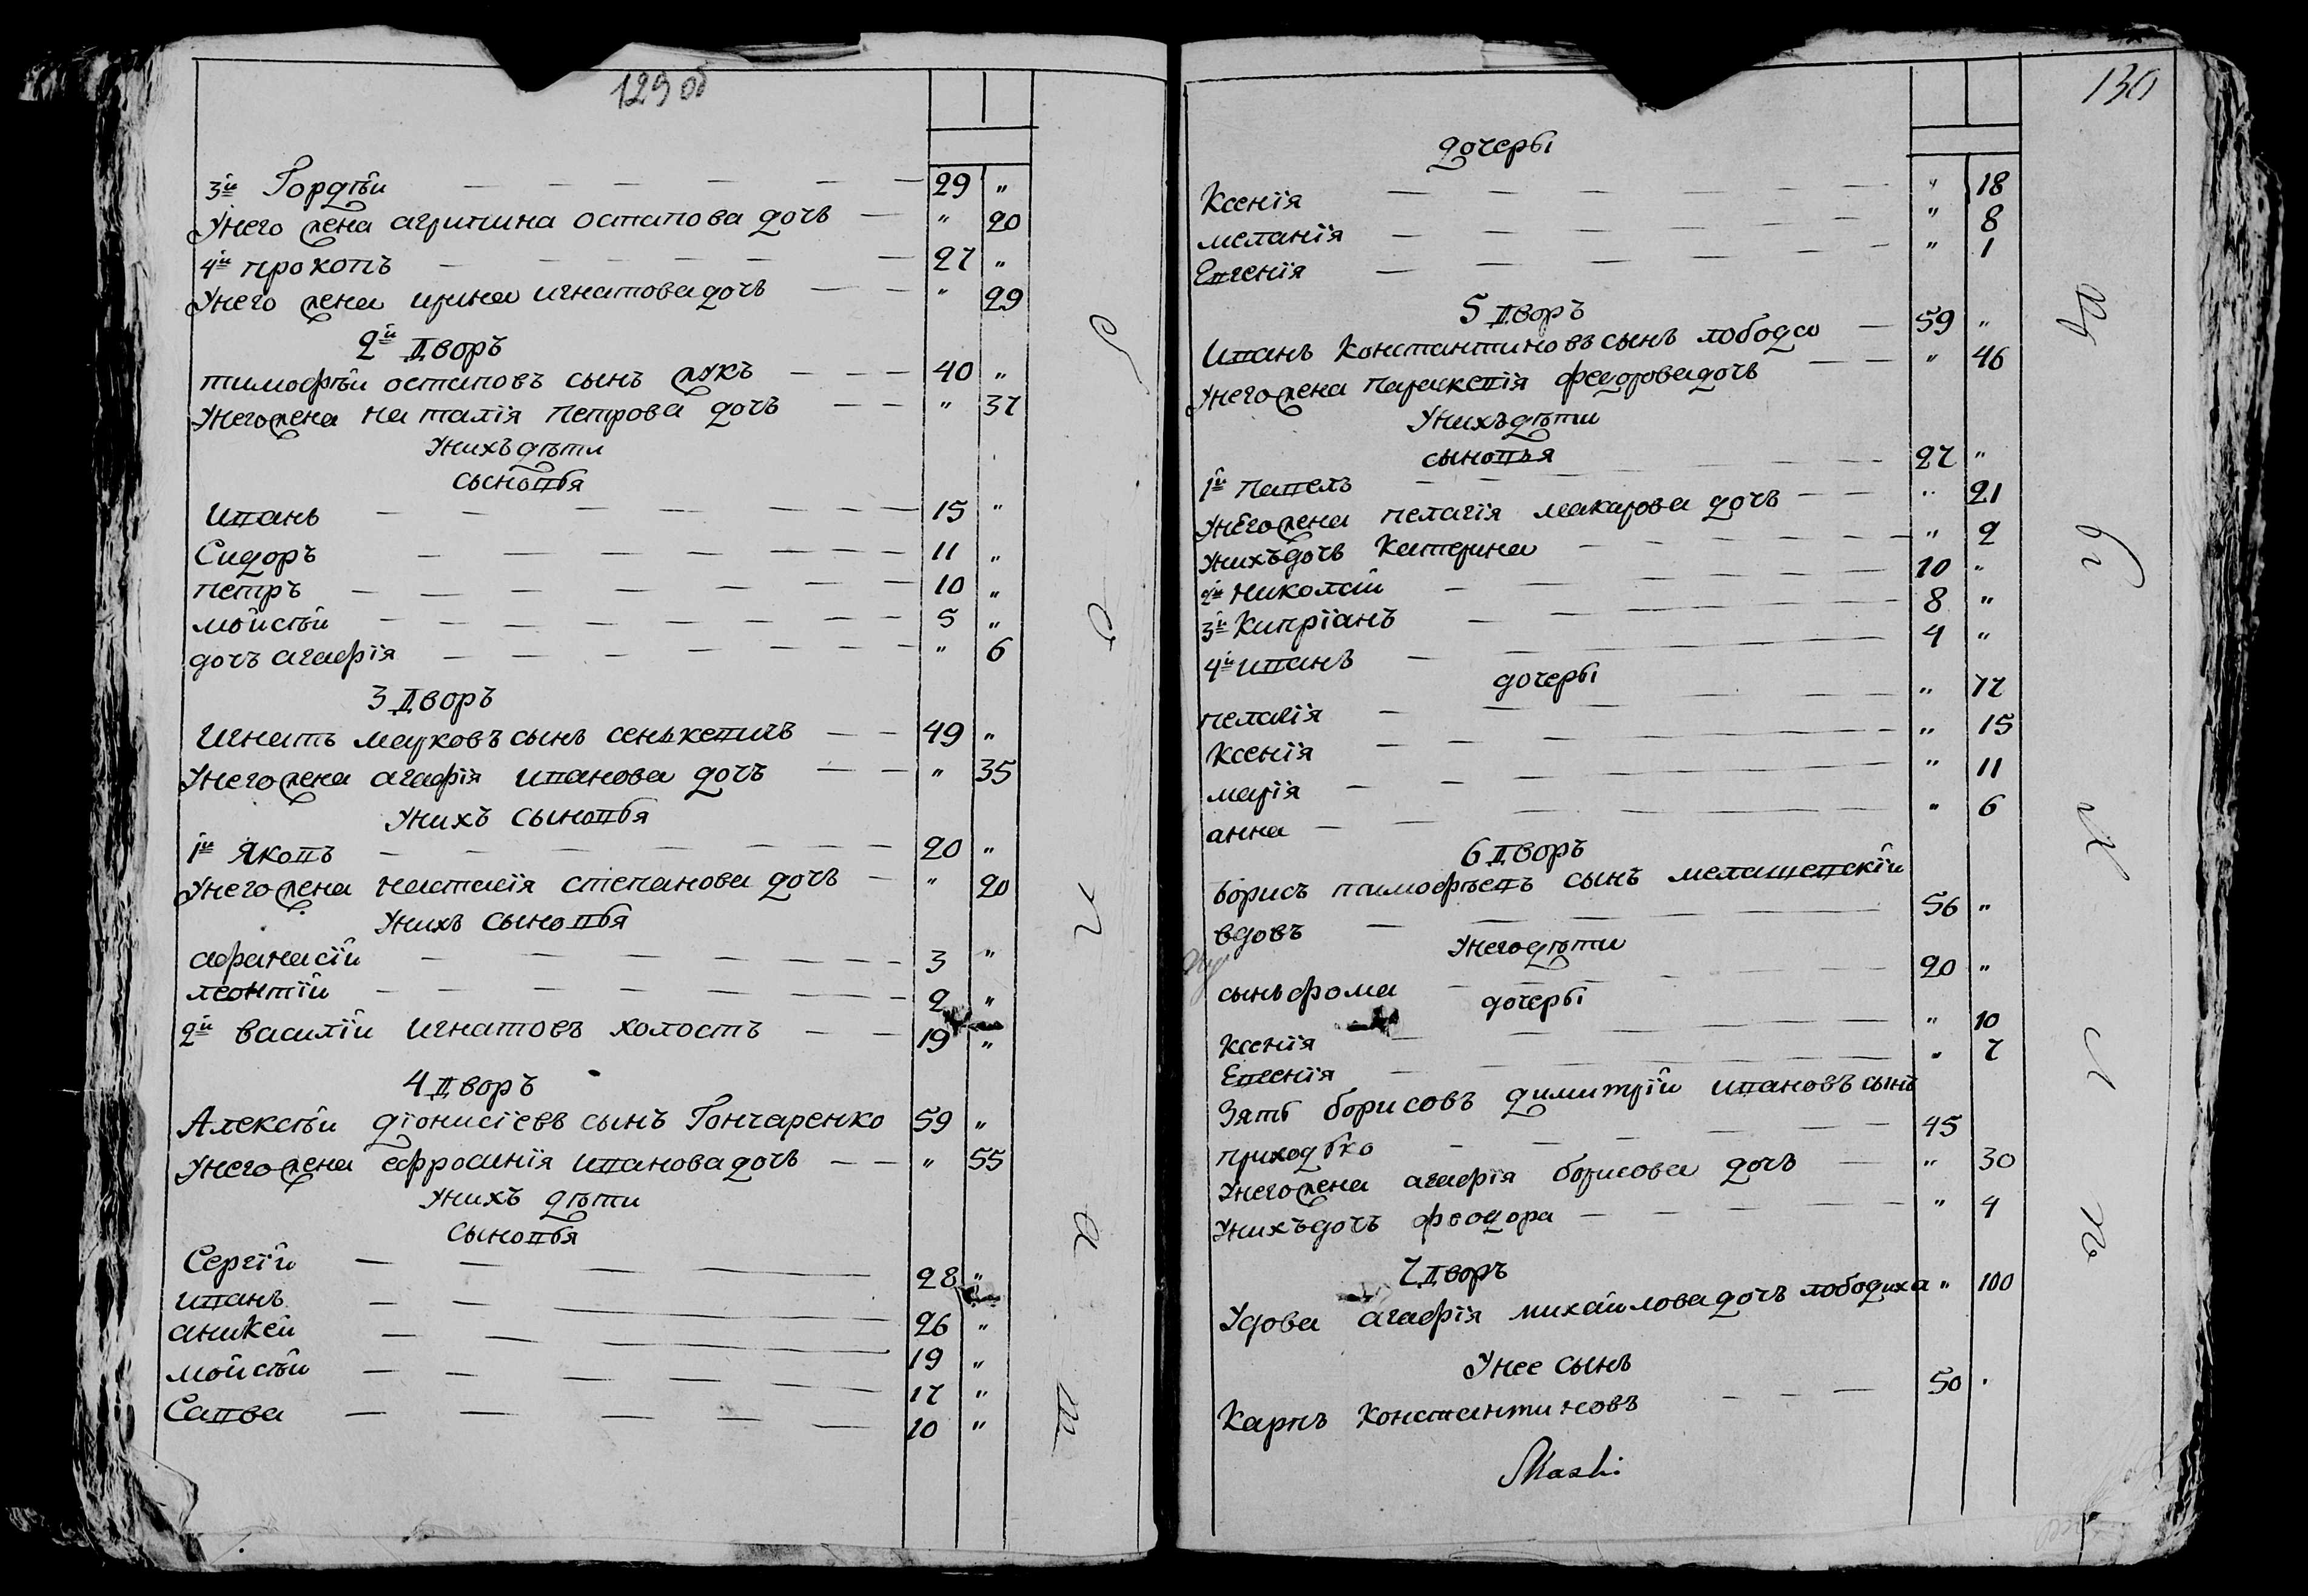 129 об
3й Гордѣй — — — — — — 29 "
Унего жена агрипина остапова дочь — " 20
4й прокопъ — — — — — — 27 "
Унего жена ирина игнатова дочь — — " 29
2й Дворъ
тимофѣй остаповъ сынъ жукъ — — — 40 "
Унего жена наталія петрова дочь — — " 37
Унихъ дѣти
сыновья
иванъ — — — — — — — 15 "
Сидоръ — — — — — — 11 "
петръ — — — — — — — 10 "
мойсѣй — — — — — — — 5 "
дочь агафія — — — — — — — " 6
3 Дворъ
Игнатъ марковъ сынъ сенькевичъ — — 49 "
Унего жена агафія иванова дочь — — " 35
Унихъ сыновья
1й Яковъ — — — — — — — 20 "
Унего жена настасія степанова дочь — " 20
Унихъ сыновья
афанасій — — — — — — — 3 "
леонтій — — — — — — — 2 "
2й василій игнатовъ холостъ — — 19 "
4 Дворъ
Алексѣй діонисіевъ сынъ Гончаренко 59 "
Унего жена ефросинія иванова дочь — — " 55
Унихъ дѣти
сыновья
Сергій — — — — 28 "
иванъ — — — — 26 "
аникей — — — — 19 "
мойсѣй — — — — — 17 "
Савва — — — — — 10 "
130
дочеры
Ксенія — — — — — — " 18
меланія — — — — — — " 8
Евгенія — — — — — — " 1
5 Дворъ
Иванъ Константиновъ сынъ лобода — 59 "
Унего жена параскевія феодорова дочь — — " 46
Унихъ дѣти
сыновья
1й павелъ — — — — — — 27 "
Унего жена пелагія макарова дочь — — " 21
Унихъ дочь Катерина — — — — — " 2
2й николай — — — — — — 10 "
3й Кипріанъ — — — — — — 8 "
4й иванъ — — — — — — 4 "
дочеры
пелагія — — — — — — " 17
Ксенія — — — — — — " 15
марія — — — — — — " 11
анна — — — — — — " 6
6 Дворъ
борисъ тимофѣевъ сынъ мелашевскій
вдовъ — — — — — — 56 "
Унего дѣти
сынъ фома — — — — — 20 "
дочеры
Ксенія — — — — — " 10
Евгенія — — — — — " 7
Зять борисовъ димитрій ивановъ сынъ
приходько — — — — — — 45
Унего жена агафія борисова дочь — " 30
Унихъ дочь феодора — — — — " 4
7 Дворъ
Удова агафія михайлова дочь лободиха " 100
Унее сынъ
Карпъ Константиновъ — — — 50 "